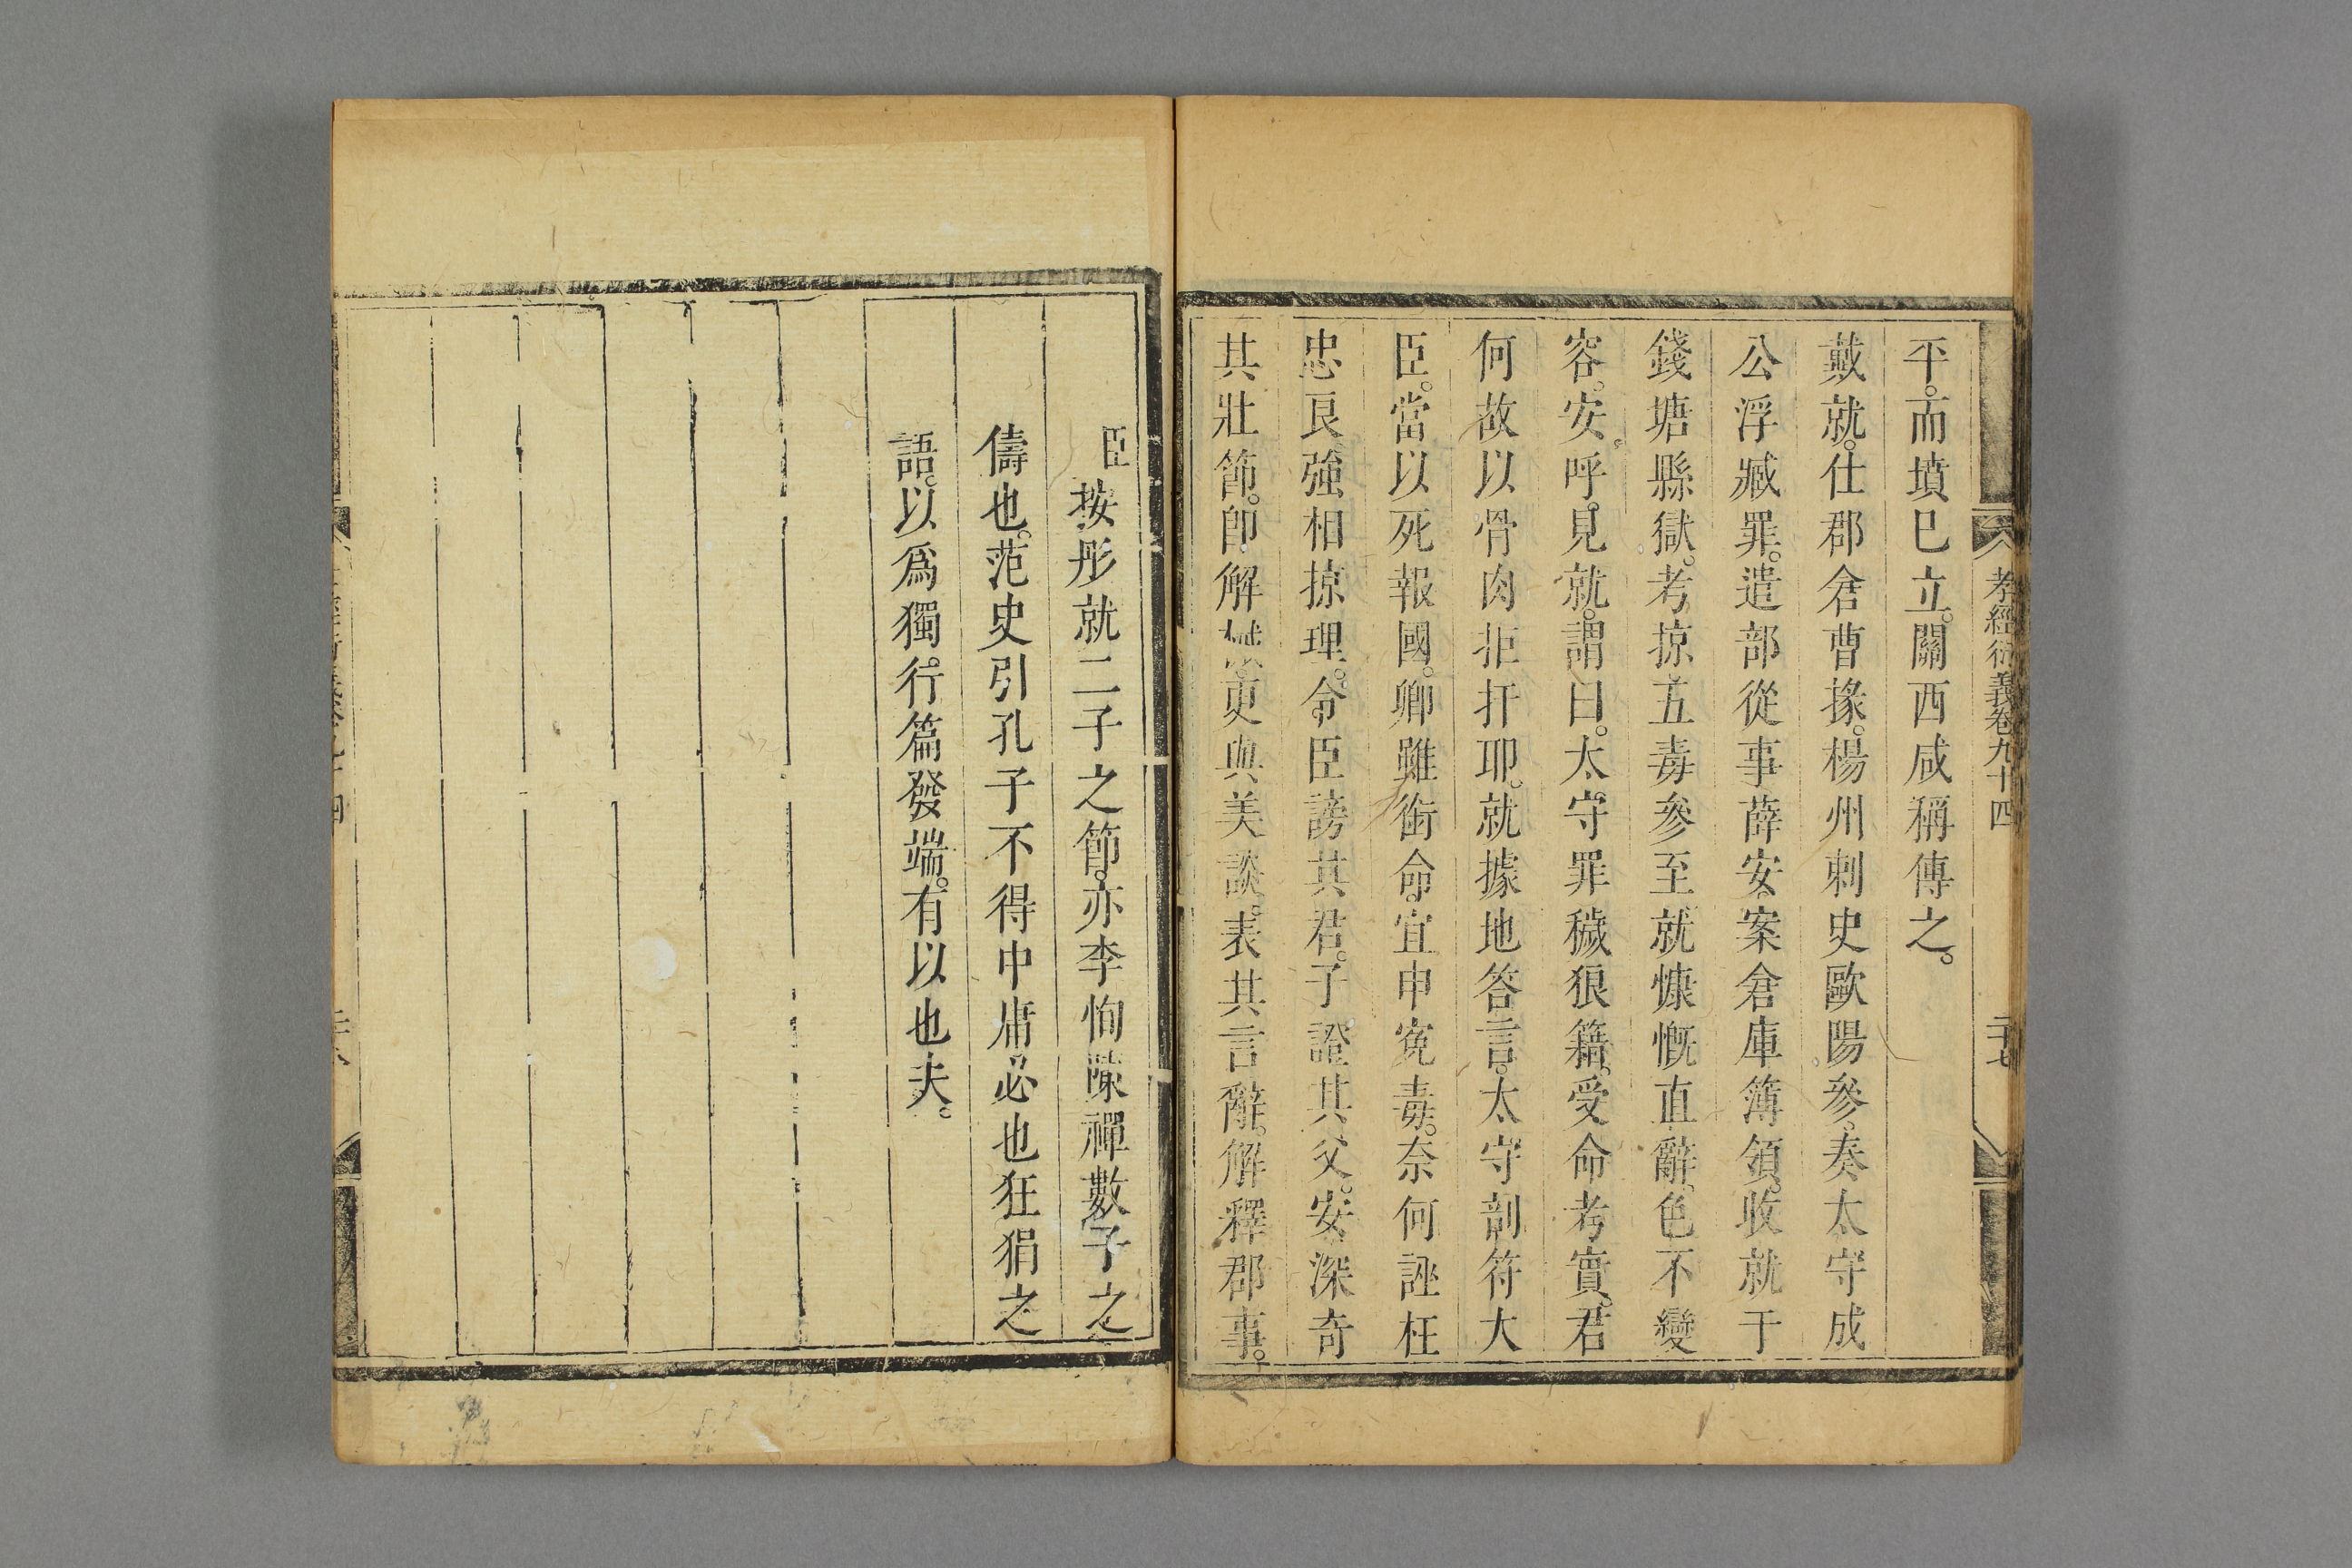 孝經衍義卷九十四
二十七
平。而墳已立。關西咸稱傳之。
戴就。仕郡倉曹掾。楊州刺史歐陽參。奏太守成
公浮臧罪。遣部從事薛安。案倉庫簿領。收就于
錢塘縣獄。考掠五毒參至。就慷慨直辭。色不變
容。安。呼。見就。謂曰。太守罪穢狼籍。受命考實。君
何故以骨肉拒扞耶。就據地答言。太守剖符大
臣。當以死報國。卿雖銜命。宜申寃毒。奈何誣枉
忠良。強相掠理。令臣謗其君。子證其父。安。深奇
其壯節。卽解械。更與美談。表其言辭。解釋郡事。
臣按彤就二子之節。亦李恂陳禪數子之
儔也。范史引孔子不得中庸必也狂狷之
語。以爲獨行篇發端。有以也夫。